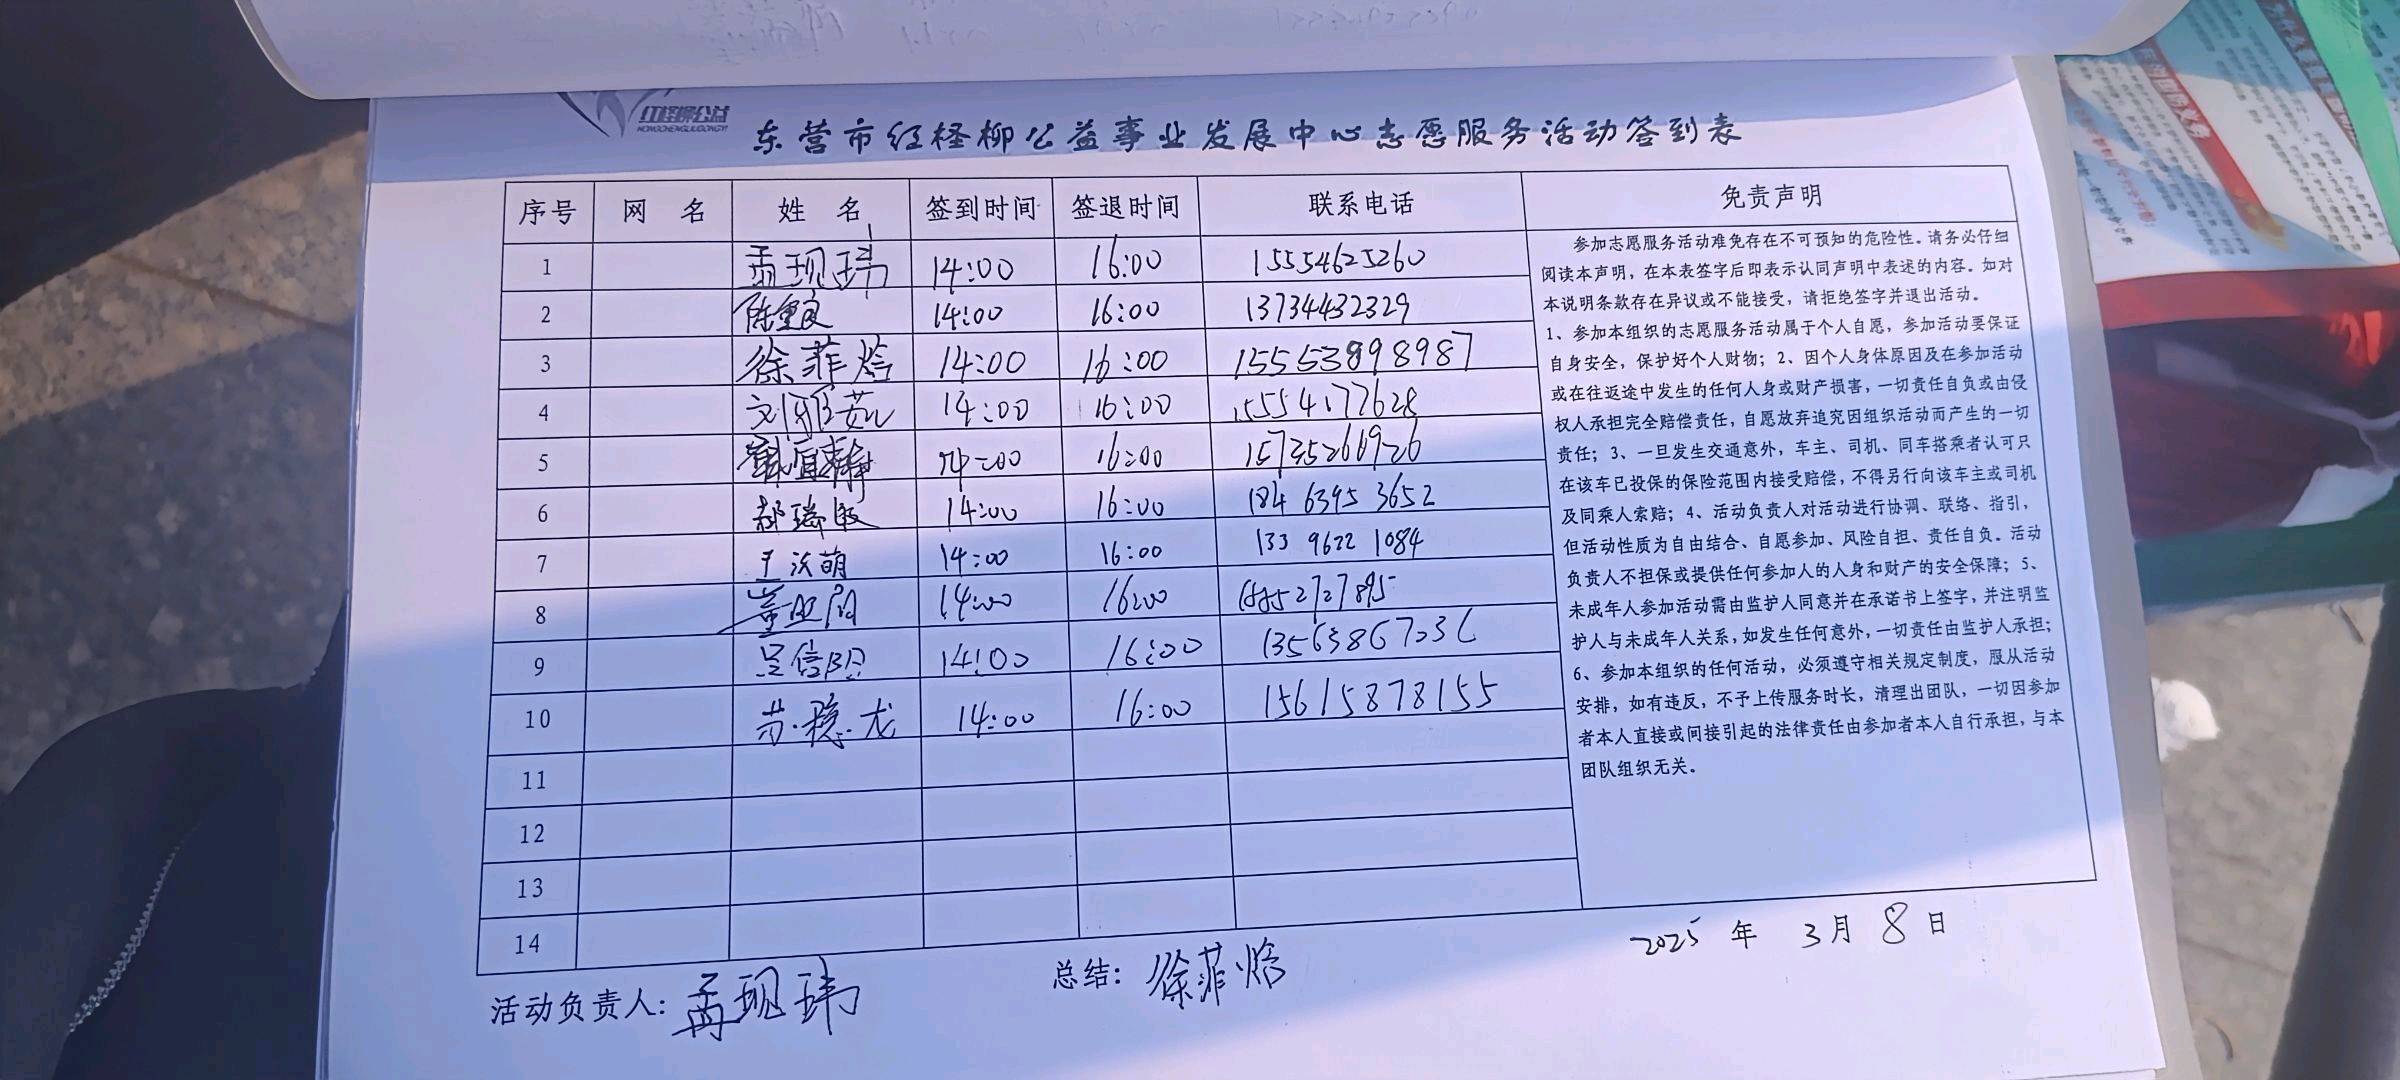 红柽柳公益
HONGCHENGLIUGONGYI
东营市红柽柳公益事业发展中心志愿服务活动签到表
序号 网 名 姓 名 签到时间 签退时间 联系电话 免责声明
1 孟现玮 14:00 16:00 15554625260
2 14:00 16:00 13734432329
3 徐菲焓 14:00 16:00 15553898987
4 刘雅茹 14:00 16:00 15554177628
5 14:00 16:00 15735266926
6 郝瑞敏 14:00 16:00 184 6395 3652
7 王沃萌 14:00 16:00 133 9622 1084
8 14:00 16:00 18852727895
9 吴信阳 14:00 16:00
10 苏稳龙 14:00 16:00 15615878155
11
12
13
14
参加志愿服务活动难免存在不可预知的危险性。请务必仔细
阅读本声明，在本表签字后即表示认同声明中表述的内容。如对
本说明条款存在异议或不能接受，请拒绝签字并退出活动。
1、参加本组织的志愿服务活动属于个人自愿，参加活动要保证
自身安全，保护好个人财物；2、因个人身体原因及在参加活动
或在往返途中发生的任何人身或财产损害，一切责任自负或由侵
权人承担完全赔偿责任，自愿放弃追究因组织活动而产生的一切
责任；3、一旦发生交通意外，车主、司机、同车搭乘者认可只
在该车已投保的保险范围内接受赔偿，不得另行向该车主或司机
及同乘人索赔；4、活动负责人对活动进行协调、联络、指引，
但活动性质为自由结合、自愿参加、风险自担、责任自负。活动
负责人不担保或提供任何参加人的人身和财产的安全保障；5、
未成年人参加活动需由监护人同意并在承诺书上签字，并注明监
护人与未成年人关系，如发生任何意外，一切责任由监护人承担；
6、参加本组织的任何活动，必须遵守相关规定制度，服从活动
安排，如有违反，不予上传服务时长，清理出团队，一切因参加
者本人直接或间接引起的法律责任由参加者本人自行承担，与本
团队组织无关。
2025 年 3月 8日
活动负责人：孟现玮 总结：徐菲焓